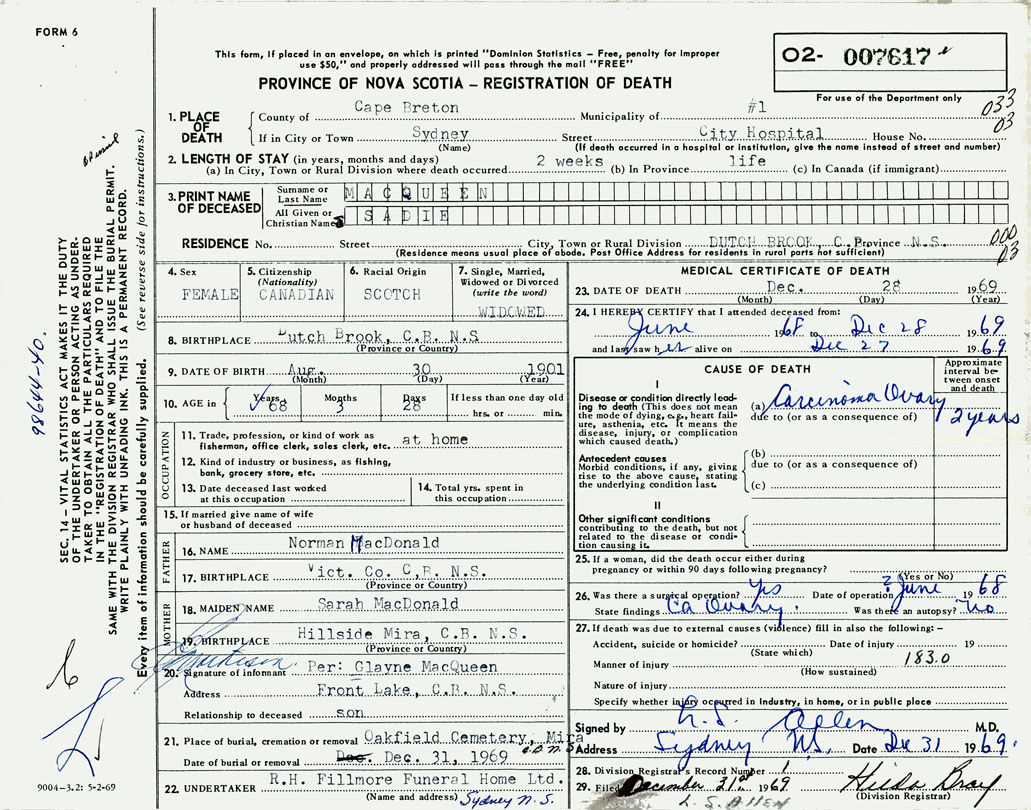 FORM 6
This form, if placed in an envelope, on which is printed "Dominion Statistics – Free, penalty for improper
use $50," and properly addressed will pass through the mail "FREE"
PROVINCE OF NOVA SCOTIA – REGISTRATION OF DEATH
02- 007617
For use of the Department only
033
03
1. PLACE OF DEATH
County of Cape Breton Municipality of #1
If in City or Town Sydney Street City Hospital House No.
(Name) (If death occurred in a hospital or institution, give the name instead of street and number)
2. LENGTH OF STAY (in years, months and days)
(a) In City, Town or Rural Division where death occurred 2 weeks (b) In Province life (c) In Canada (if immigrant)
3. PRINT NAME OF DECEASED
Surname or Last Name MACQUEEN
All Given or Christian Names SADIE
RESIDENCE No. Street City, Town or Rural Division DUTCH BROOK, C. Province N.S.
(Residence means usual place of abode. Post Office Address for residents in rural parts not sufficient)
000
03
4. Sex FEMALE
5. Citizenship (Nationality) CANADIAN
6. Racial Origin SCOTCH
7. Single, Married, Widowed or Divorced (write the word) WIDOWED
8. BIRTHPLACE Dutch Brook, C.B. N.S
(Province or Country)
9. DATE OF BIRTH Aug. 30 1901
(Month) (Day) (Year)
10. AGE in Years 68 Months 3 Days 28 If less than one day old
hrs. or min.
OCCUPATION
11. Trade, profession, or kind of work as
fisherman, office clerk, sales clerk, etc. at home
12. Kind of industry or business, as fishing,
bank, grocery store, etc.
13. Date deceased last worked
at this occupation
14. Total yrs. spent in
this occupation
15. If married give name of wife
or husband of deceased
FATHER
16. NAME Norman MacDonald
17. BIRTHPLACE Vict. Co. C,B. N.S.
(Province or Country)
MOTHER
18. MAIDEN NAME Sarah MacDonald
19. BIRTHPLACE Hillside Mira, C.B. N.S.
(Province or Country)
20. Signature of informant Per: Glayne MacQueen
Address Front Lake, C.B. N.S.
Relationship to deceased son
21. Place of burial, cremation or removal Oakfield Cemetery, Mira
Date of burial or removal Dec. 31, 1969
R.H. Fillmore Funeral Home Ltd.
22. UNDERTAKER
(Name and address) Sydney N.S.
MEDICAL CERTIFICATE OF DEATH
23. DATE OF DEATH Dec. 28 1969
(Month) (Day) (Year)
24. I HEREBY CERTIFY that I attended deceased from:
June 1968 to Dec 28 1969
and last saw her alive on Dec 27 1969.
CAUSE OF DEATH
Approximate interval between onset and death
I
Disease or condition directly leading to death (This does not mean the mode of dying, e.g., heart failure, asthenia, etc. It means the disease, injury, or complication which caused death.)
(a) Carcinoma Ovary 2 years
due to (or as a consequence of)
Antecedent causes
Morbid conditions, if any, giving rise to the above cause, stating the underlying condition last.
(b)
due to (or as a consequence of)
(c)
II
Other significant conditions
contributing to the death, but not related to the disease or condition causing it.
25. If a woman, did the death occur either during
pregnancy or within 90 days following pregnancy?
(Yes or No)
26. Was there a surgical operation? Yes Date of operation ? June 1968
State findings Ca Ovary. Was there an autopsy? no
27. If death was due to external causes (violence) fill in also the following: –
Accident, suicide or homicide? Date of injury 19
(State which)
Manner of injury 183.0
(How sustained)
Nature of injury
Specify whether injury occurred in Industry, in home, or in public place
Signed by L.S. Allen M.D.
Address Sydney N.S. Date Dec 31 1969.
28. Division Registrar's Record Number 1
29. Filed December 31st 1969 Hilda Bray
(Division Registrar)
L. S. ALLEN
SEC. 14 – VITAL STATISTICS ACT MAKES IT THE DUTY
OF THE UNDERTAKER OR PERSON ACTING AS UNDER-
TAKER TO OBTAIN ALL THE PARTICULARS REQUIRED
IN THE "REGISTRATION OF DEATH" AND TO FILE THE
SAME WITH THE DIVISION REGISTRAR WHO SHALL ISSUE THE BURIAL PERMIT.
WRITE PLAINLY WITH UNFADING INK. THIS IS A PERMANENT RECORD.
Every item of information should be carefully supplied. (See reverse side for instructions.)
98644-40.
9004-3.2: 5-2-69